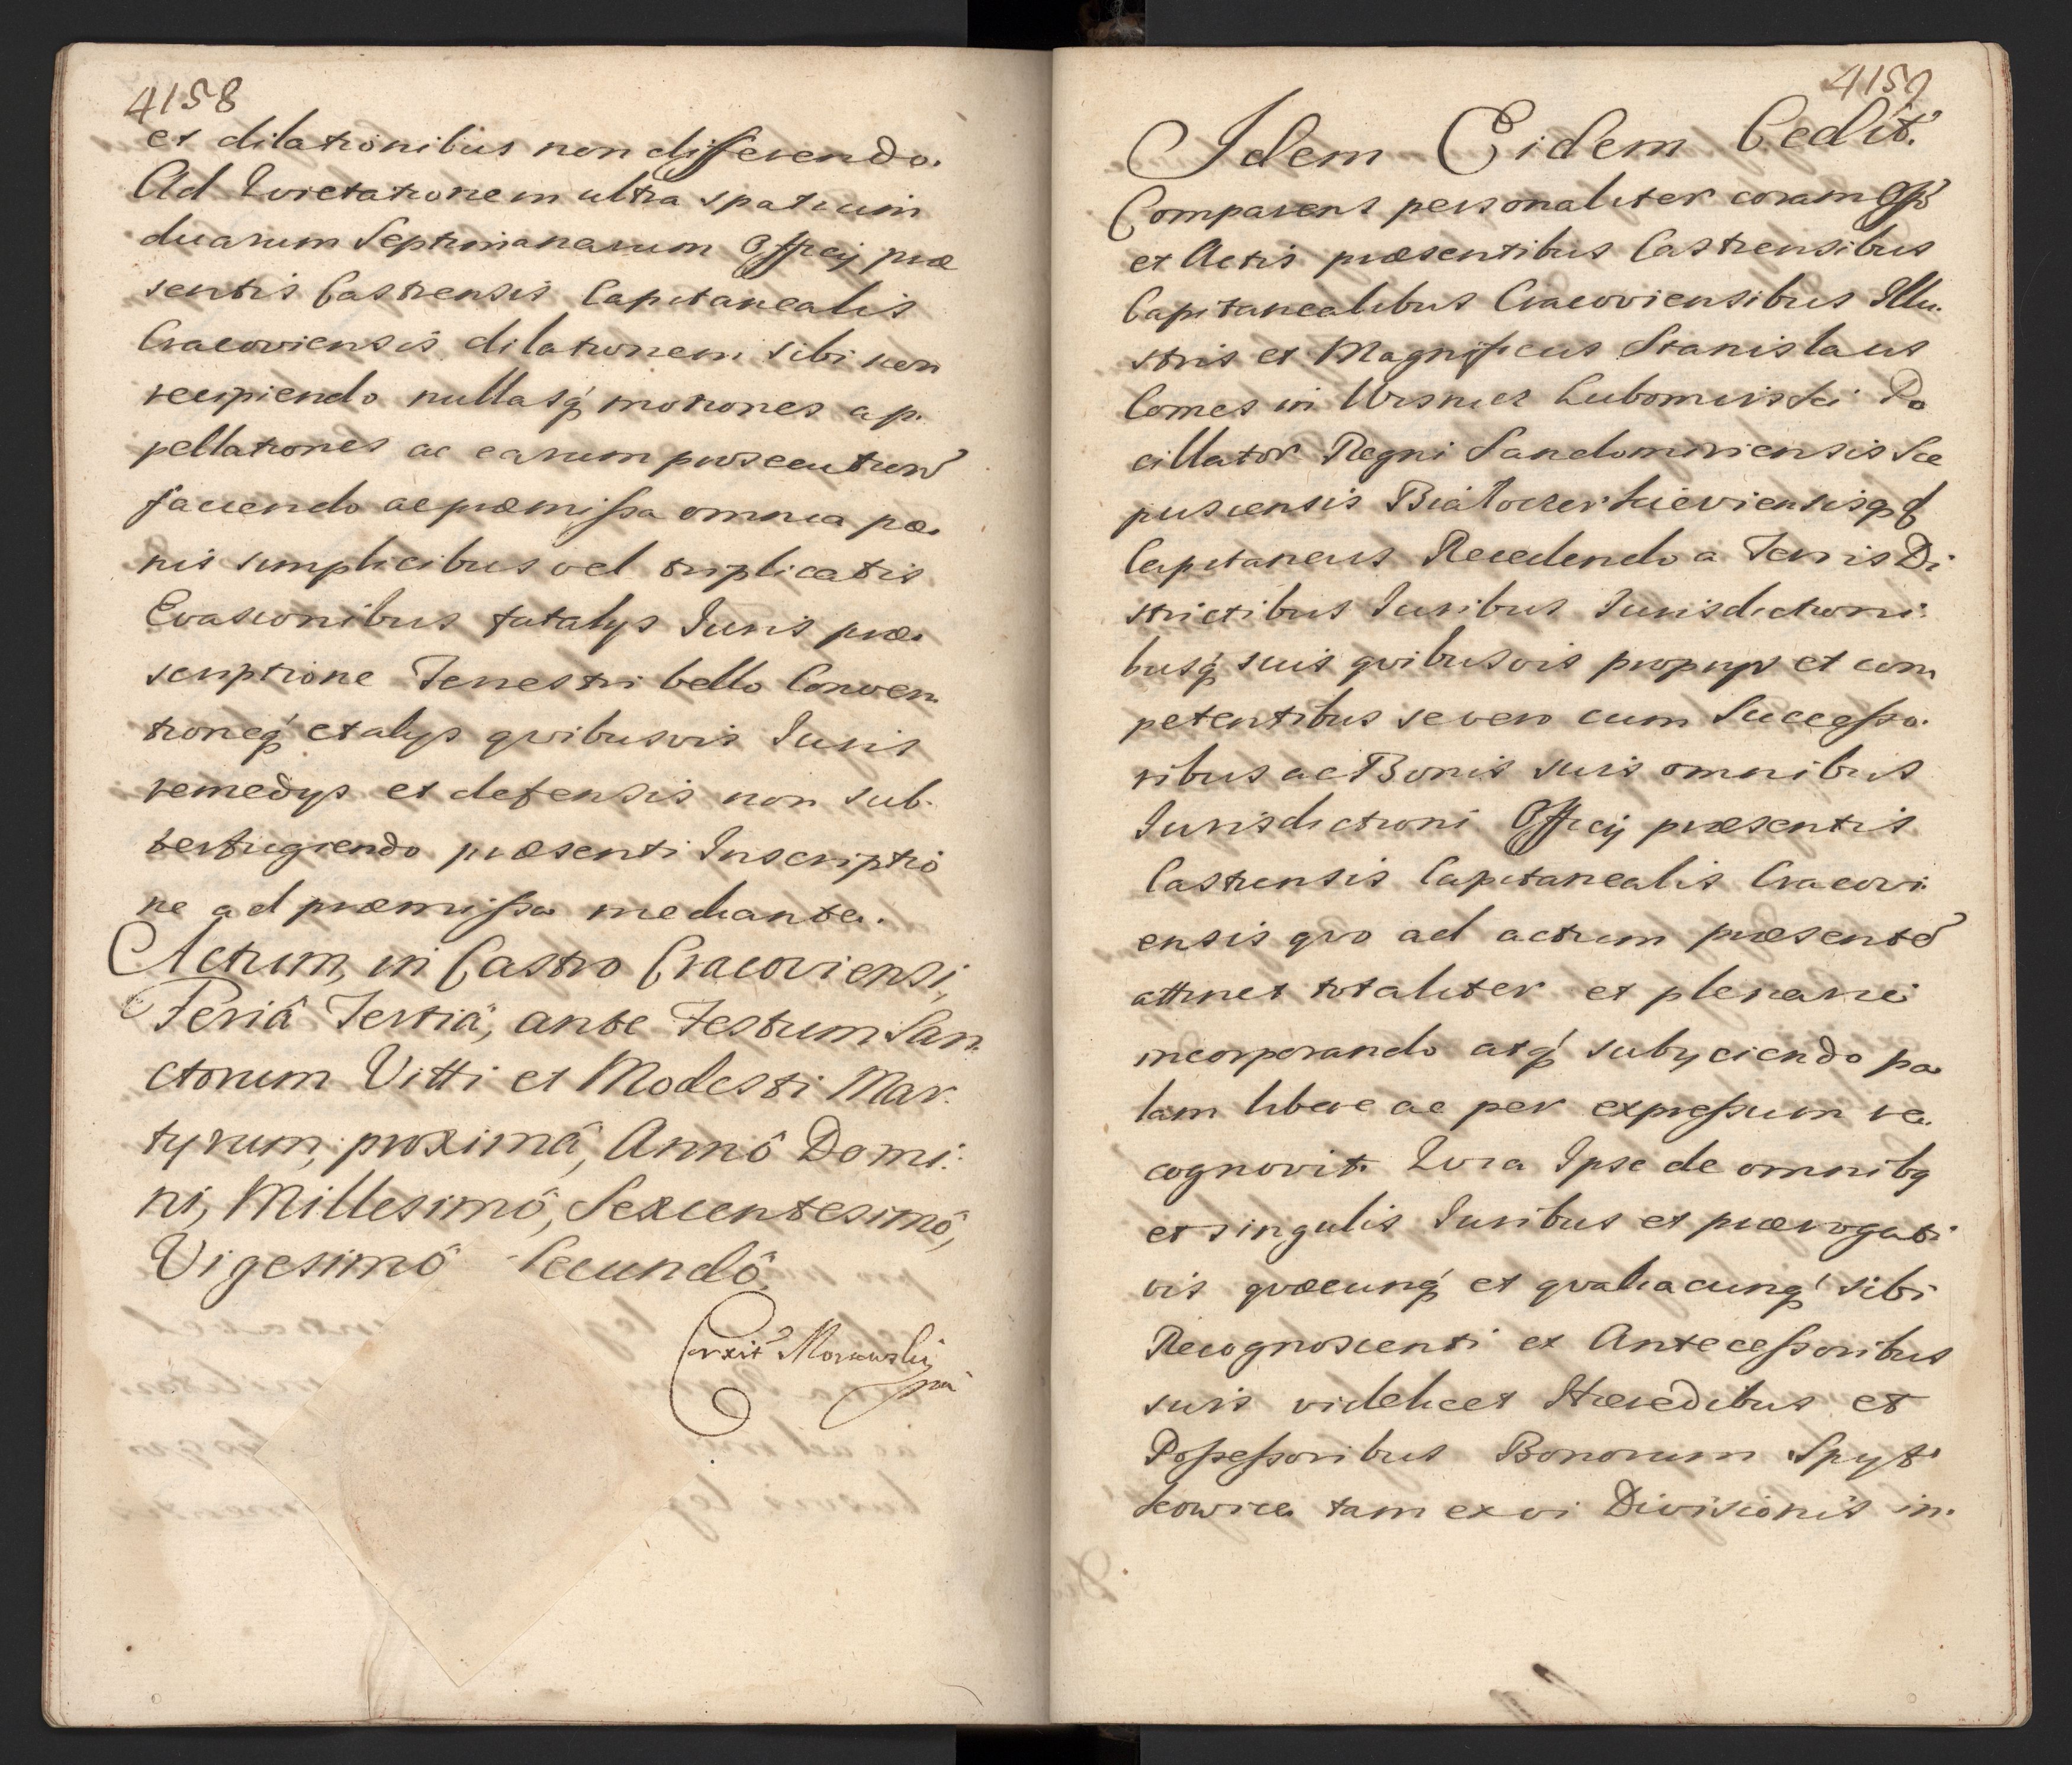 4158
et dilationibus non differendo.
Ad Qvietationem ultra spatium
duarum Septimanarum Officij præ
sentis Castrensis Capitanealis
Cracoviensis dilationem sibi non
recipiendo nullasq́ motiones ap.
pellationes ac earum prosecution̄
faciendo ac præmissa omnia pæ.
nis simplicibus vel triplicatis
Evasionibus fatalys Juris præ.
scriptione Terrestri bello Conven
tioneq́ et alys qvibusvis Juris
remedys et defensis non sub.
terfugiendo præsenti Inscriptio
ne ad præmissa mediante.
Actum, in Castro Cracoviensi,
Feriâ Tertiâ, ante Festum San.
ctorum Vitti et Modesti Mar.
tyrum, proximâ, Annô Domi:
ni, Millesimô, Sexcentesimô,
Vigesimô Secundô.
Corxit Morawskij
mp
4159
Idem Eidem Cedit.
Comparens personaliter coram Offo
et Actis præsentibus Castrensibus
Capitanealibus Cracoviensibus Illu.
stris et Magnificus Stanislaus
Comes in Wisnicz Lubomirski Po
cillator Regni Sandomiriensis Sce
pusiensis Białocerkieviensisqq́
Capitaneus Recedendo a Terris Di
strictibus Juribus Jurisdictioni:
busq́ suis qvibusvis proprys et com
petentibus se vero cum Successo.
ribus ac Bonis suis omnibus
Jurisdictioni Officij præsentis
Castrensis Capitanealis Cracovi
ensis qvo ad actum præsentē
attinet totaliter et plenarie
incorporando atq́ subyciendo pa
lam libere ac per expressum re.
cognovit. Qvia Ipse de omnibq
et singulis Juribus et prærogati
vis qvæcunq́ et qvaliacunq́ sibi
Recognoscenti ex Antecessoribus
suis videlicet Hæredibus et
Possessoribus Bonorum Spyt
kowice tam ex vi Divisionis in.